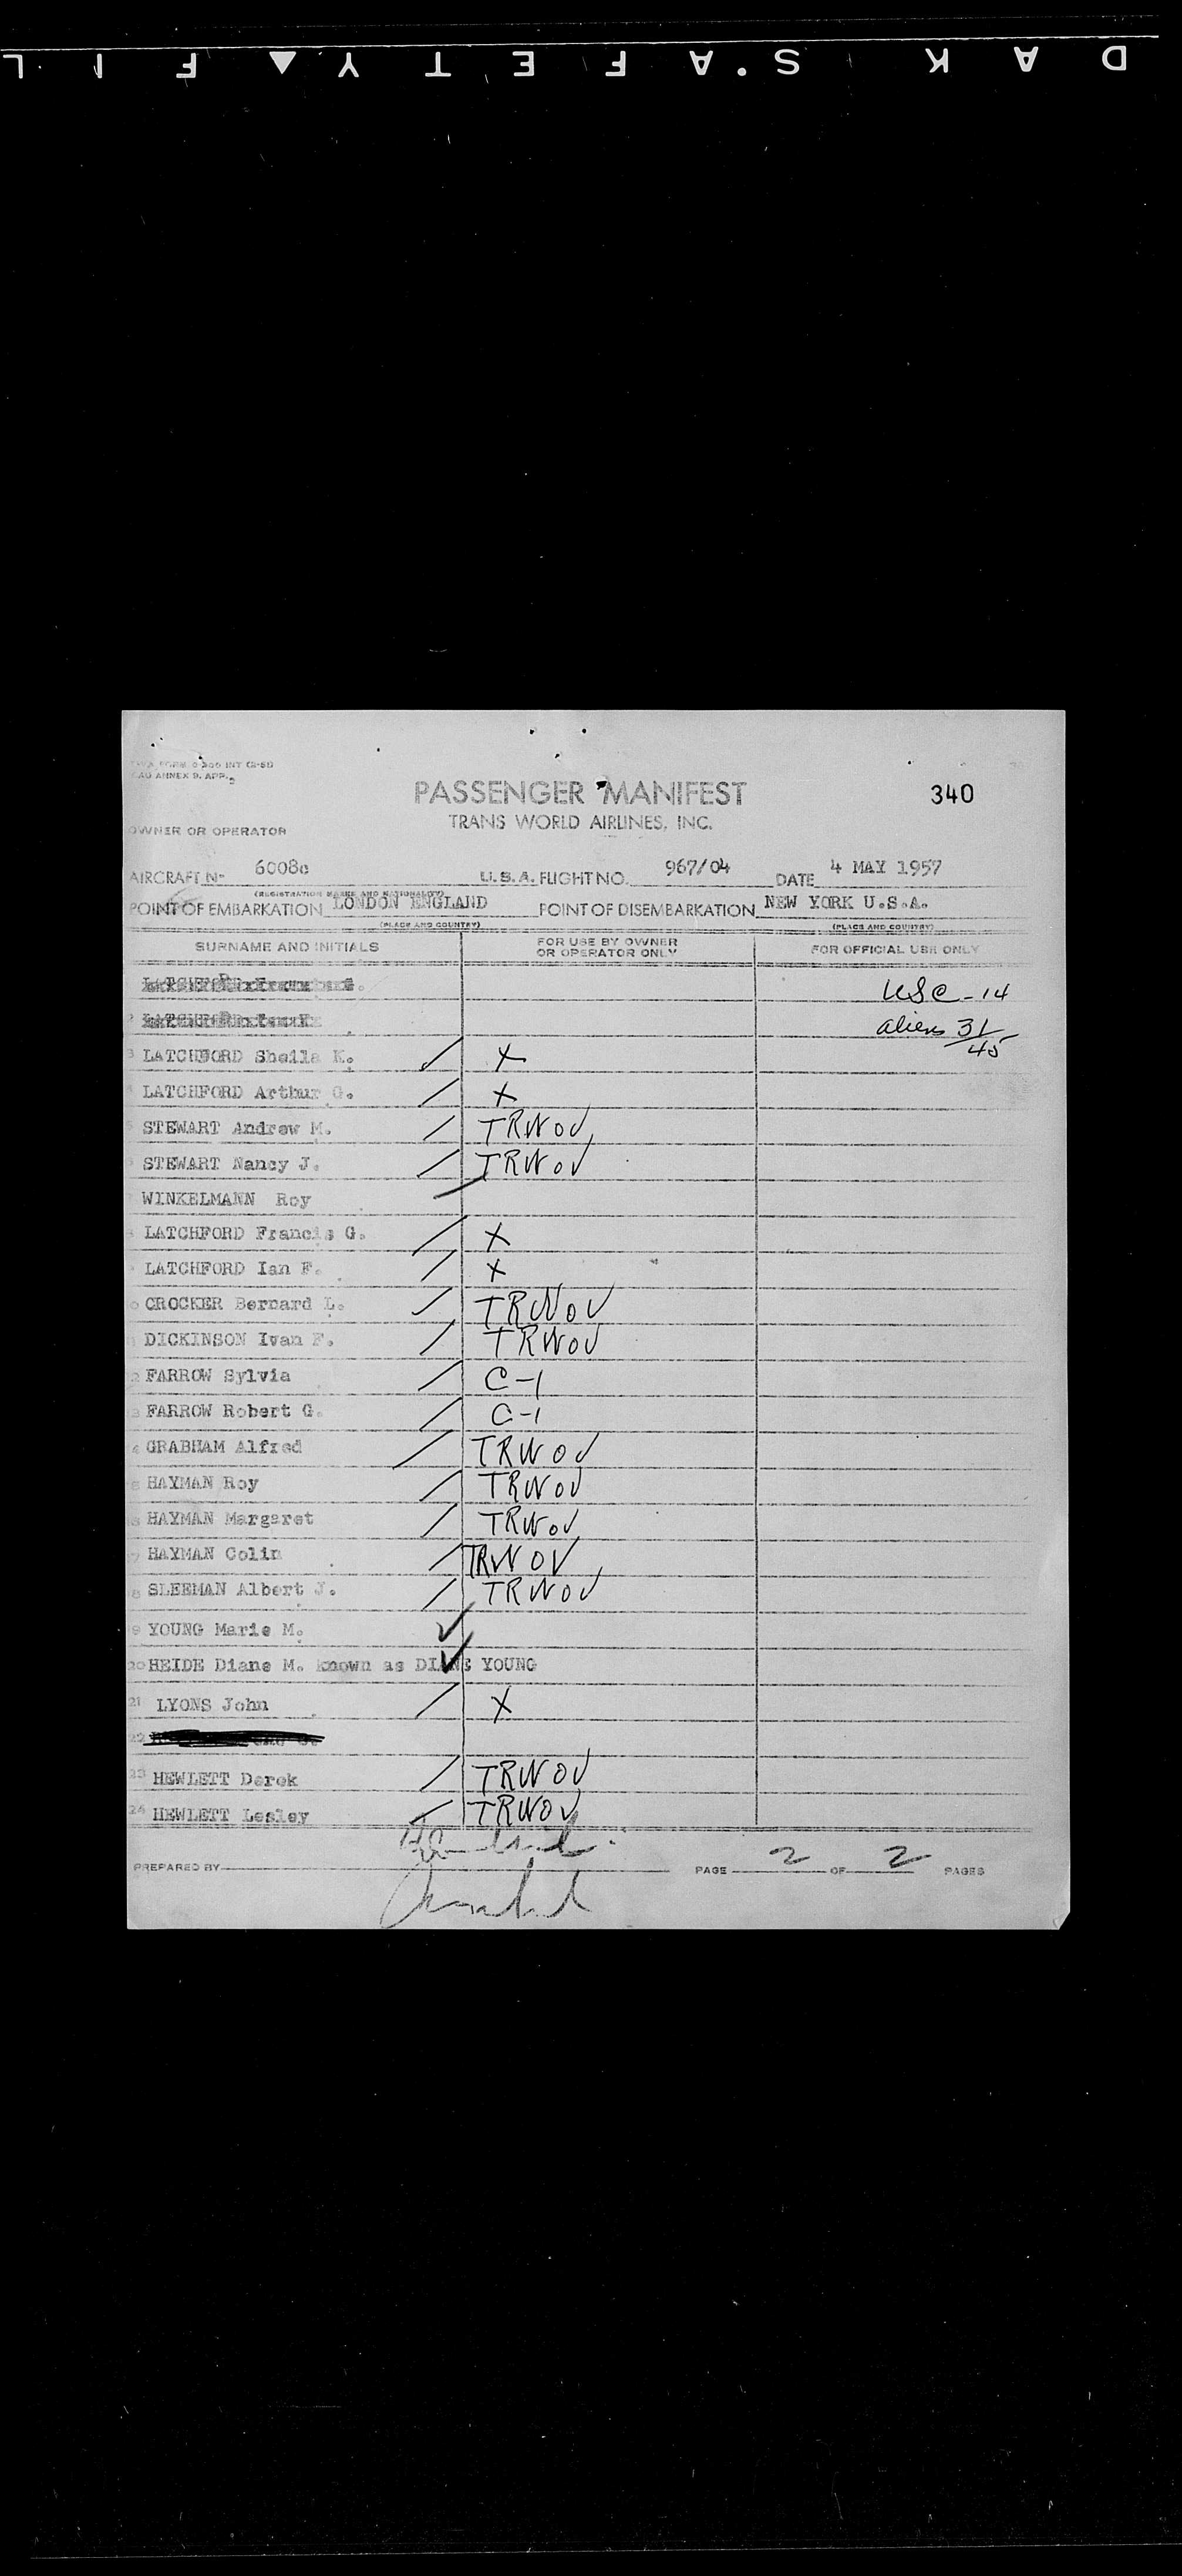 D A K S.A F E T Y ▲ F I L
T.W.A. FORM O-306 INT (2-51)
ICAO ANNEX 9, APP. 3
PASSENGER MANIFEST
340
TRANS WORLD AIRLINES, INC.
OWNER OR OPERATOR
AIRCRAFT N- 6008c U.S.A. FLIGHT NO. 967/04 DATE 4 MAY 1957
(REGISTRATION MARKS AND NATIONALITY)
POINT OF EMBARKATION LONDON ENGLAND POINT OF DISEMBARKATION NEW YORK U.S.A.
(PLACE AND COUNTRY) (PLACE AND COUNTRY)
SURNAME AND INITIALS FOR USE BY OWNER OR OPERATOR ONLY FOR OFFICIAL USE ONLY
USC-14
2 aliens 31
45
3 LATCHFORD Sheila K. X
4 LATCHFORD Arthur G. X
5 STEWART Andrew M. TRWOV
6 STEWART Nancy J. TRWOV
7 WINKELMANN Roy
8 LATCHFORD Francis G. X
9 LATCHFORD Ian F. X
10 CROCKER Bernard L. TRWOV
11 DICKINSON Ivan F. TRWOV
12 FARROW Sylvia C-1
13 FARROW Robert G. C-1
14 GRABHAM Alfred TRWOV
15 HAYMAN Roy TRWOV
16 HAYMAN Margaret TRWOV
17 HAYMAN Colin TRWOV
18 SLEEMAN Albert J. TRWOV
19 YOUNG Marie M. ✓
20 HEIDE Diane M. known as DIANE YOUNG
21 LYONS John X
22
23 HEWLETT Derek TRWOV
24 HEWLETT Lesley TRWOV
PREPARED BY PAGE 2 OF 2 PAGES